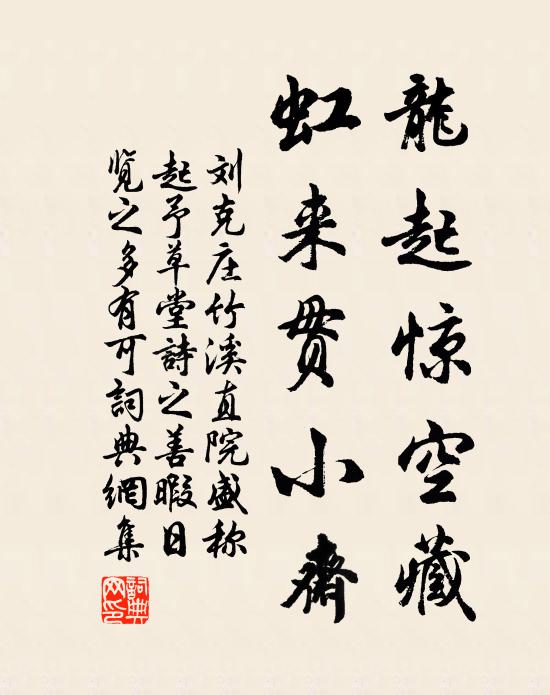 龍起惊空藏
虹来贯小齋
刘克庄竹溪直院盛称
起予草堂詩之善暇日
览之多有可詞典網集
詞典
网印